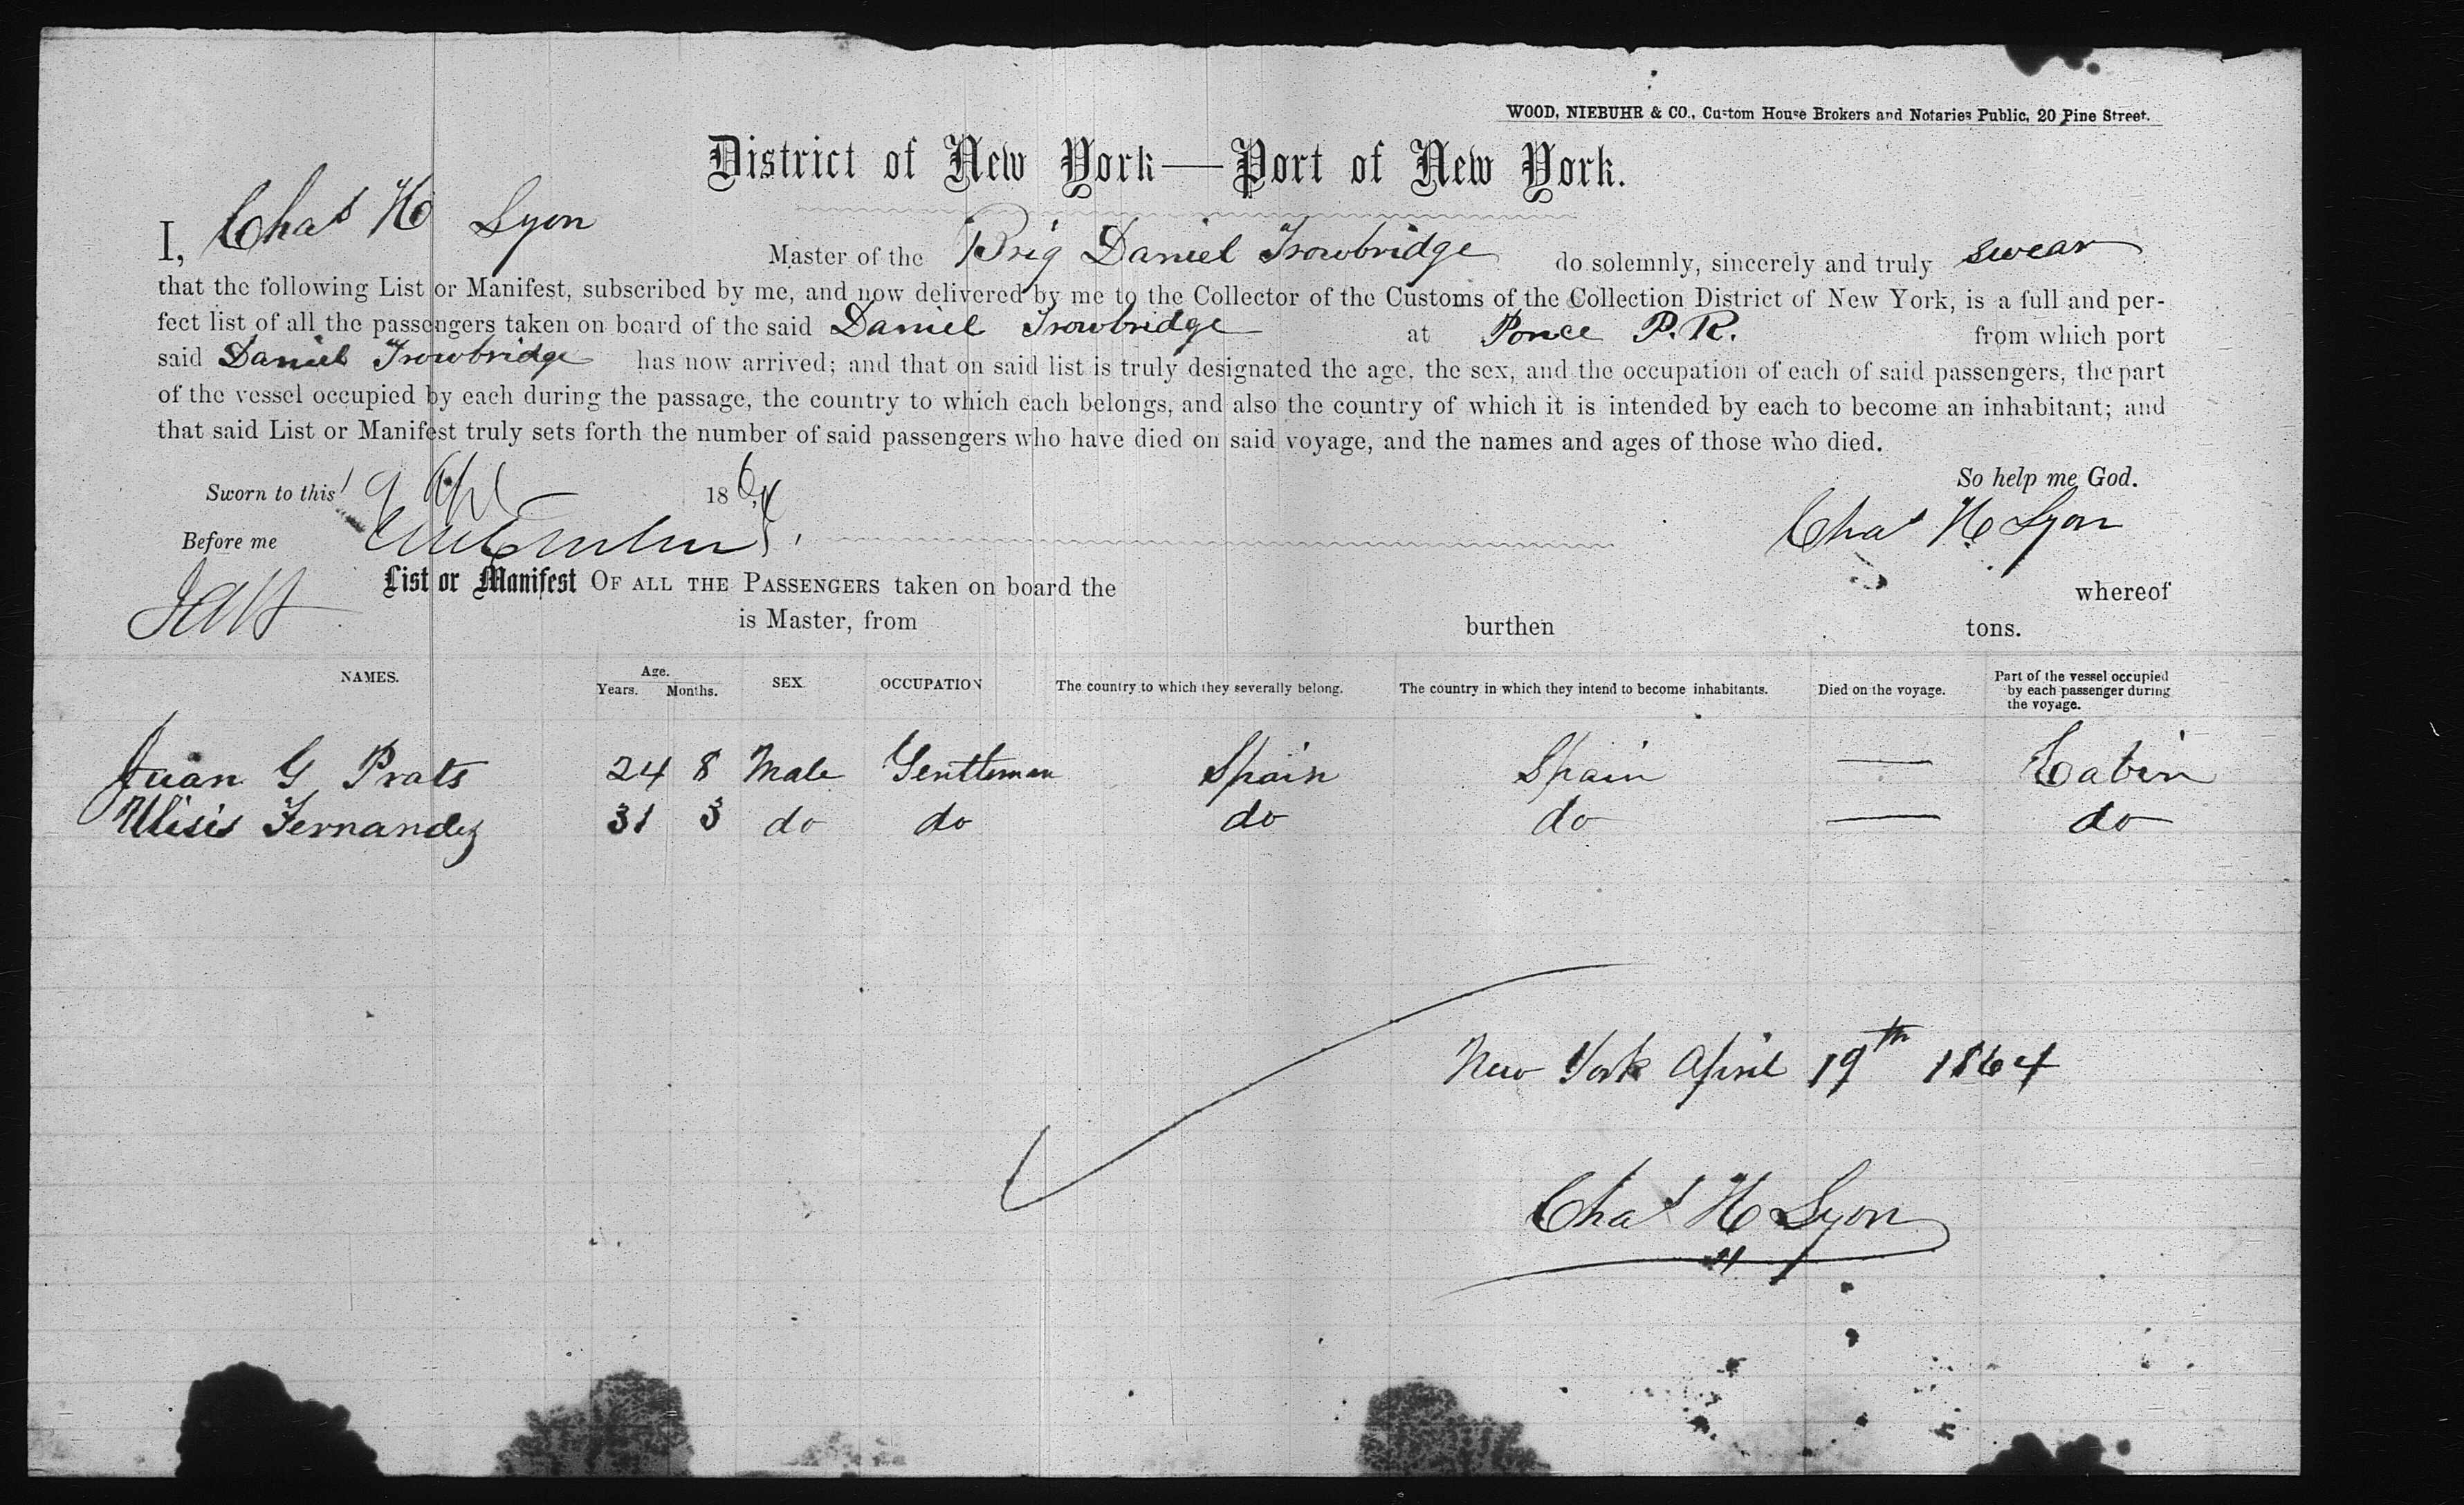 WOOD, NIEBUHR & CO., Custom House Brokers and Notaries Public, 20 Pine Street.
District of New York—Port of New York.
I, Chas H Lyon Master of the Brig Daniel Trowbridge do solemnly, sincerely and truly swear
that the following List or Manifest, subscribed by me, and now delivered by me to the Collector of the Customs of the Collection District of New York, is a full and per-
fect list of all the passengers taken on board of the said Daniel Trowbridge at Ponce P.R. from which port
said Daniel Trowbridge has now arrived; and that on said list is truly designated the age, the sex, and the occupation of each of said passengers, the part
of the vessel occupied by each during the passage, the country to which each belongs, and also the country of which it is intended by each to become an inhabitant; and
that said List or Manifest truly sets forth the number of said passengers who have died on said voyage, and the names and ages of those who died.
So help me God.
Sworn to this 19 Apl 1864
Before me Chas H Lyon
List or Manifest OF ALL THE PASSENGERS taken on board the whereof
is Master, from burthen tons.
NAMES. Age. Years. Months. SEX OCCUPATION The country to which they severally belong. The country in which they intend to become inhabitants. Died on the voyage. Part of the vessel occupied by each passenger during the voyage.
Juan G Prats 24 8 Male Gentleman Spain Spain — Cabin
Ulisis Fernandez 31 3 do do do do — do
New York April 19th 1864
Chas H Lyon